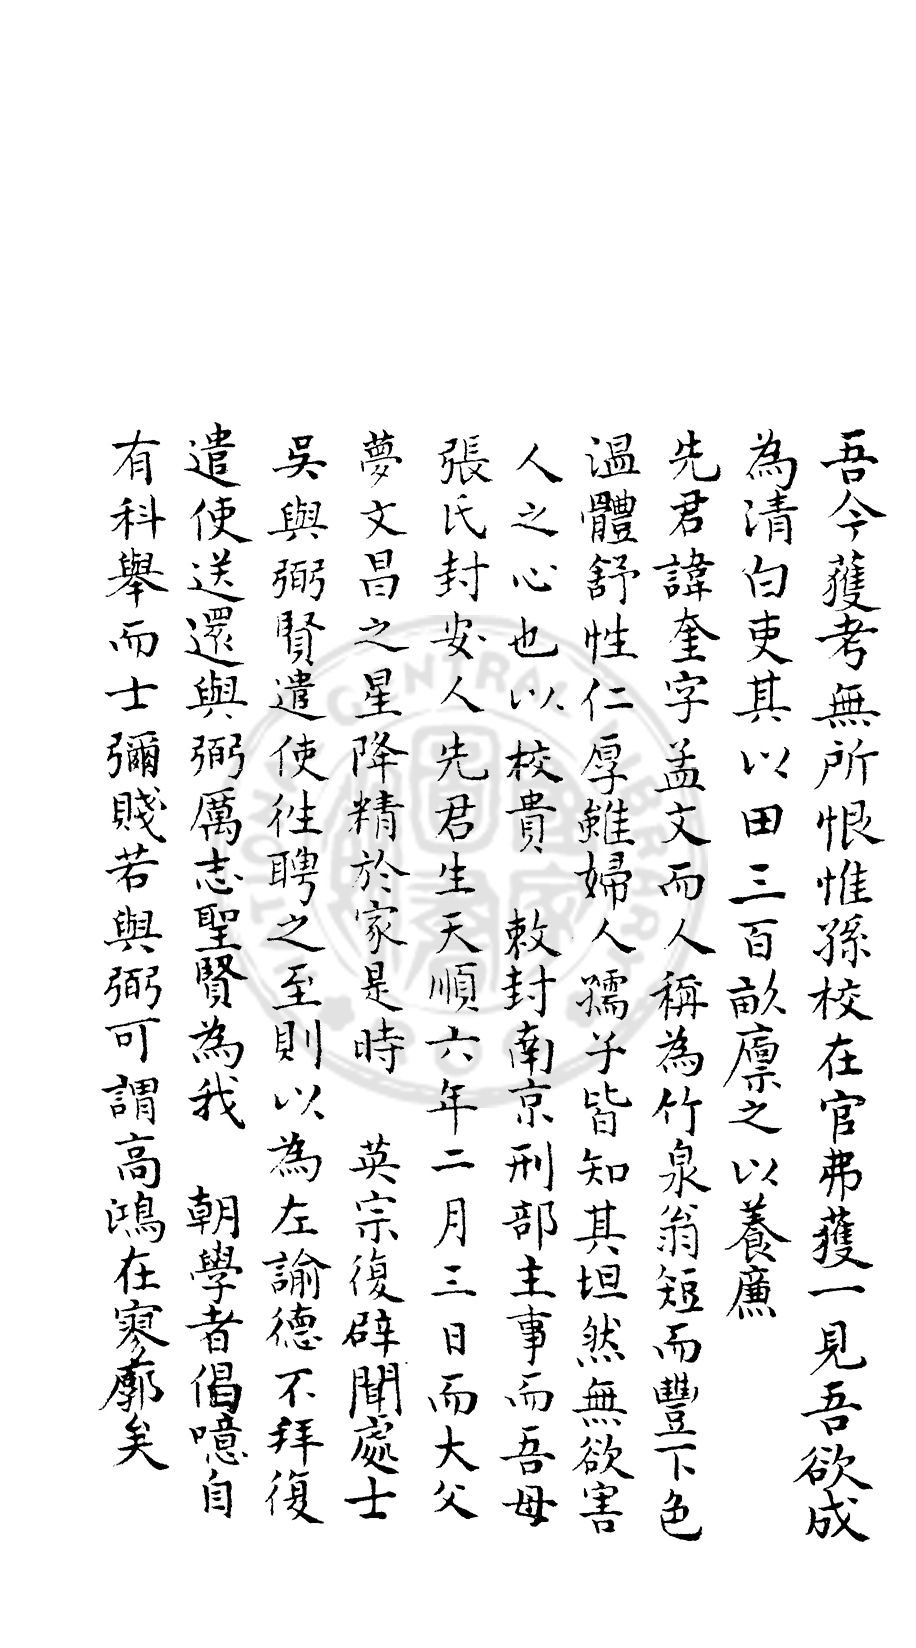 吾今獲考無所恨惟孫校在官弗獲一見吾欲成
為清白吏其以田三百畝廩之以養廉
先君諱奎字孟文而人稱為竹泉翁短而豐下色
溫體舒性仁厚雖婦人孺子皆知其坦然無欲害
人之心也以校貴 敕封南京刑部主事而吾母
張氏封安人先君生天順六年二月三日而大父
夢文昌之星降精於家是時 英宗復辟聞處士
吳與弼賢遣使徃聘之至則以為左諭德不拜復
遣使送還與弼厲志聖賢為我 朝學者倡噫自
有科舉而士彌賤若與弼可謂高鴻在寥廓矣
NATIONAL CENTRAL LIBRARY